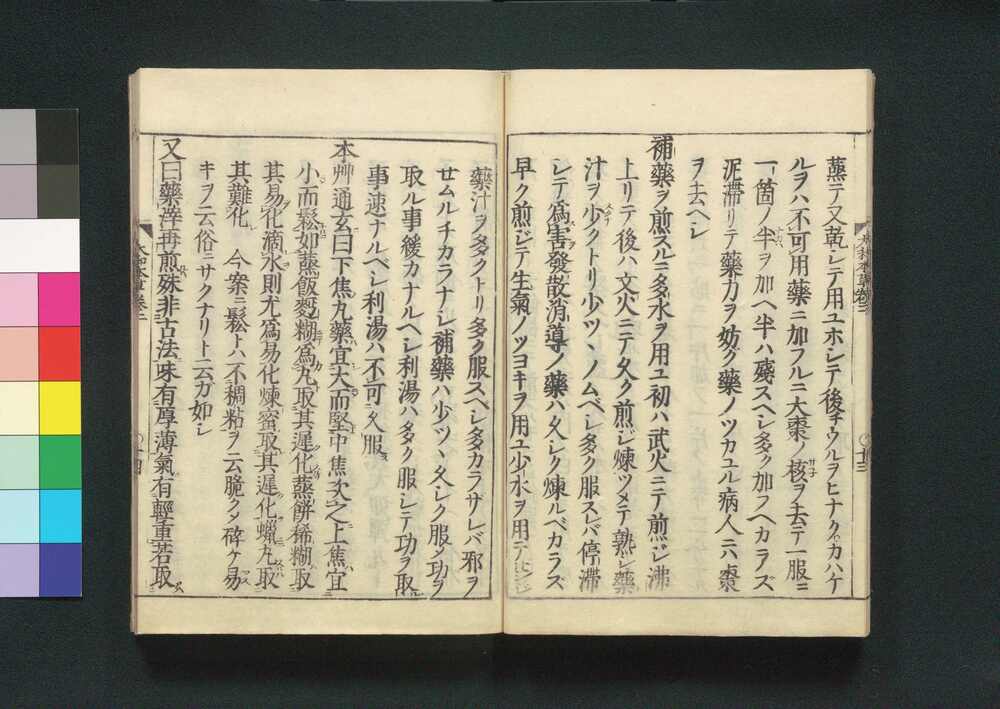 蒸テ又乾シテ用ユホシテ後チウルヲヒナク、カハケ
ルヲハ不可用藥ニ加フルニ大棗ノ核ヲ去テ一服ニ
一箇ノ半ヲ加ヘ半ハ殘スヘシ多ク加フヘカラズ
泥滯リテ藥力ヲ妨グ藥ノツカユル病人ニ六棗
ヲ去ヘシ
補藥ヲ煎スルニ多水ヲ用ユ初ハ武火ニテ煎ジ沸
上リテ後ハ文火ニテ久ク煎ジ煉ツメテ熟シ藥
汁ヲ少クトリ少ツヽノムベシ多ク服スレバ停滯
シテ爲害發散消導ノ藥ハ久シク煉ルベカラズ
早ク煎ジテ生氣ノツヨキヲ用ユ少水ヲ用テセンジ
藥汁ヲ多クトリ多ク服スベシ多カラザレバ邪ヲ
せムルチカラナシ補藥ハ少ツヽ久シク服シ功ヲ
取ル事緩カナルヘシ利湯ハ多ク服シテ功ヲ取
事速ナルベシ利湯ハ不可久服
本艸通玄曰下焦丸藥宜大而堅中焦次之上焦宜
小而鬆如蒸飯麪糊爲丸取其遲化蒸餅稀糊取
其易化滴水則尤爲易化煉蜜取其遲化蠟丸取
其難化 今案ニ鬆トハ不稠粘ヲ云脆クシ碎ケ易
キヲ云俗ニサクナリト云カ如シ
又曰藥滓再煎殊非古法味有厚薄氣有輕重若取
大和本草卷二